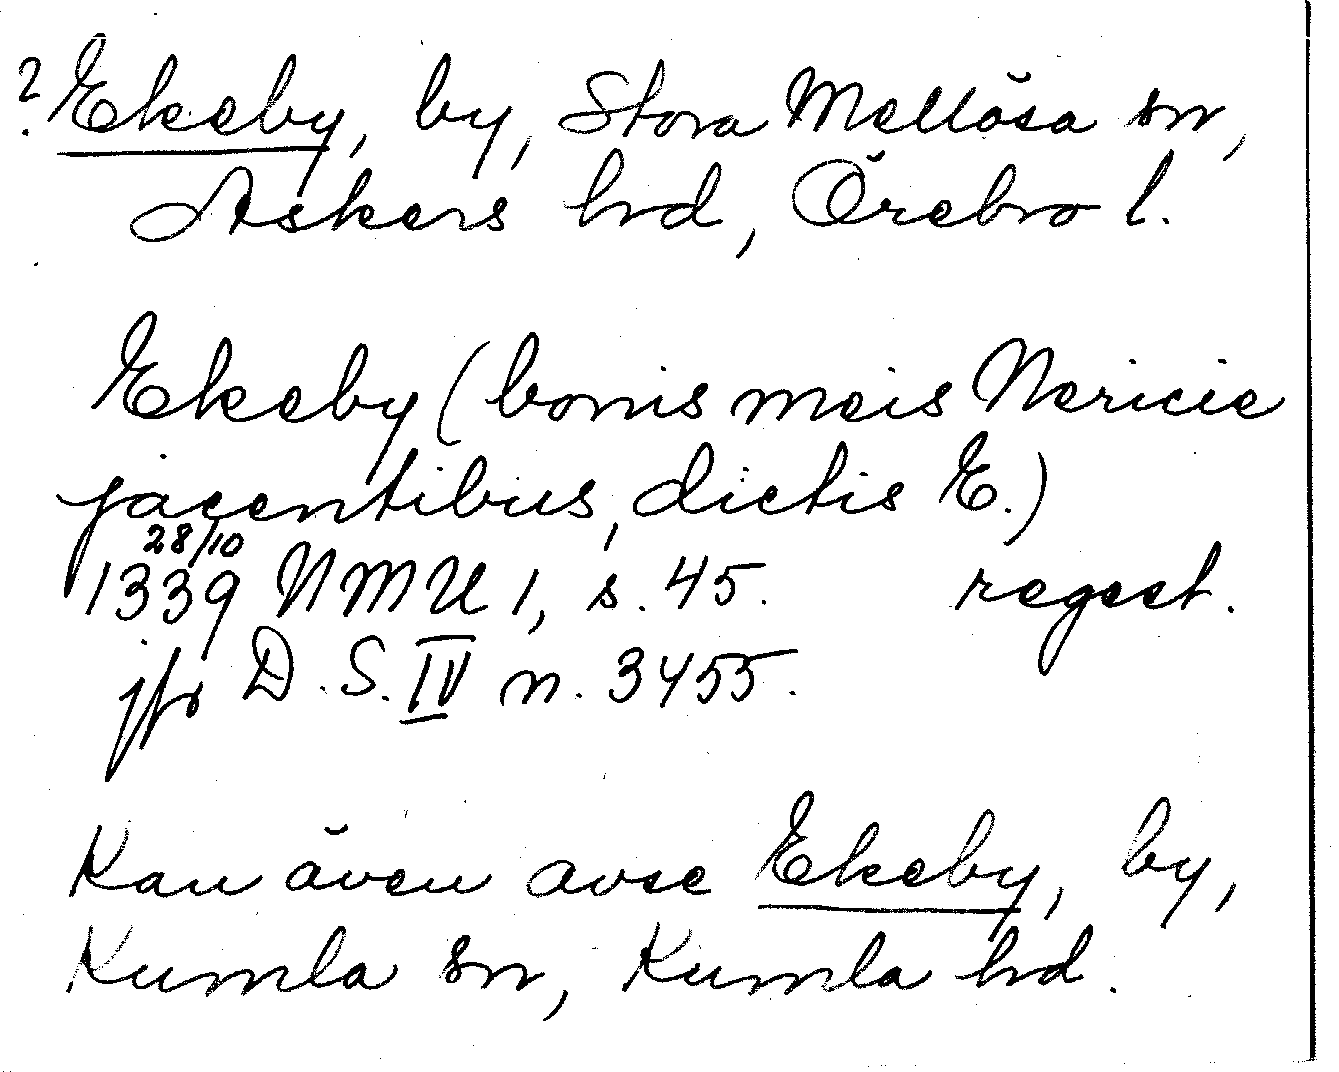 ? Ekeby, by, Stora Mellösa sn,
Askers hd, Örebro l.
Ekeby (bonis meis Nericie
jacentibus, dictis E.)
28/10
1339 NMU 1, s. 45. regest.
jfr D. S. IV n. 3455.
Kan även avse Ekeby, by,
Kumla sn, Kumla hd.